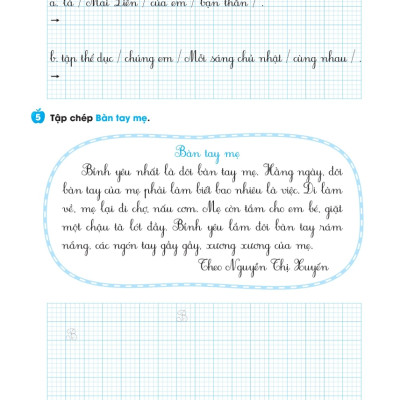 a. là / Mai Liên / của em / bạn thân / .
→
b. tập thể dục / chúng em / Mỗi sáng chủ nhật / cùng nhau / .
→
5 Tập chép Bàn tay mẹ.
Bàn tay mẹ
Bình yêu nhất là đôi bàn tay mẹ. Hằng ngày, đôi
bàn tay của mẹ phải làm biết bao nhiêu là việc. Đi làm
về, mẹ lại đi chợ, nấu cơm. Mẹ còn tắm cho em bé, giặt
một chậu tã lót đầy. Bình yêu lắm đôi bàn tay rám
nắng, các ngón tay gầy gầy, xương xương của mẹ.
Theo Nguyễn Thị Xuyến
B
B